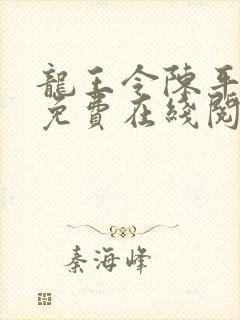 龍王令陳平
免費在綫閱
秦海峰